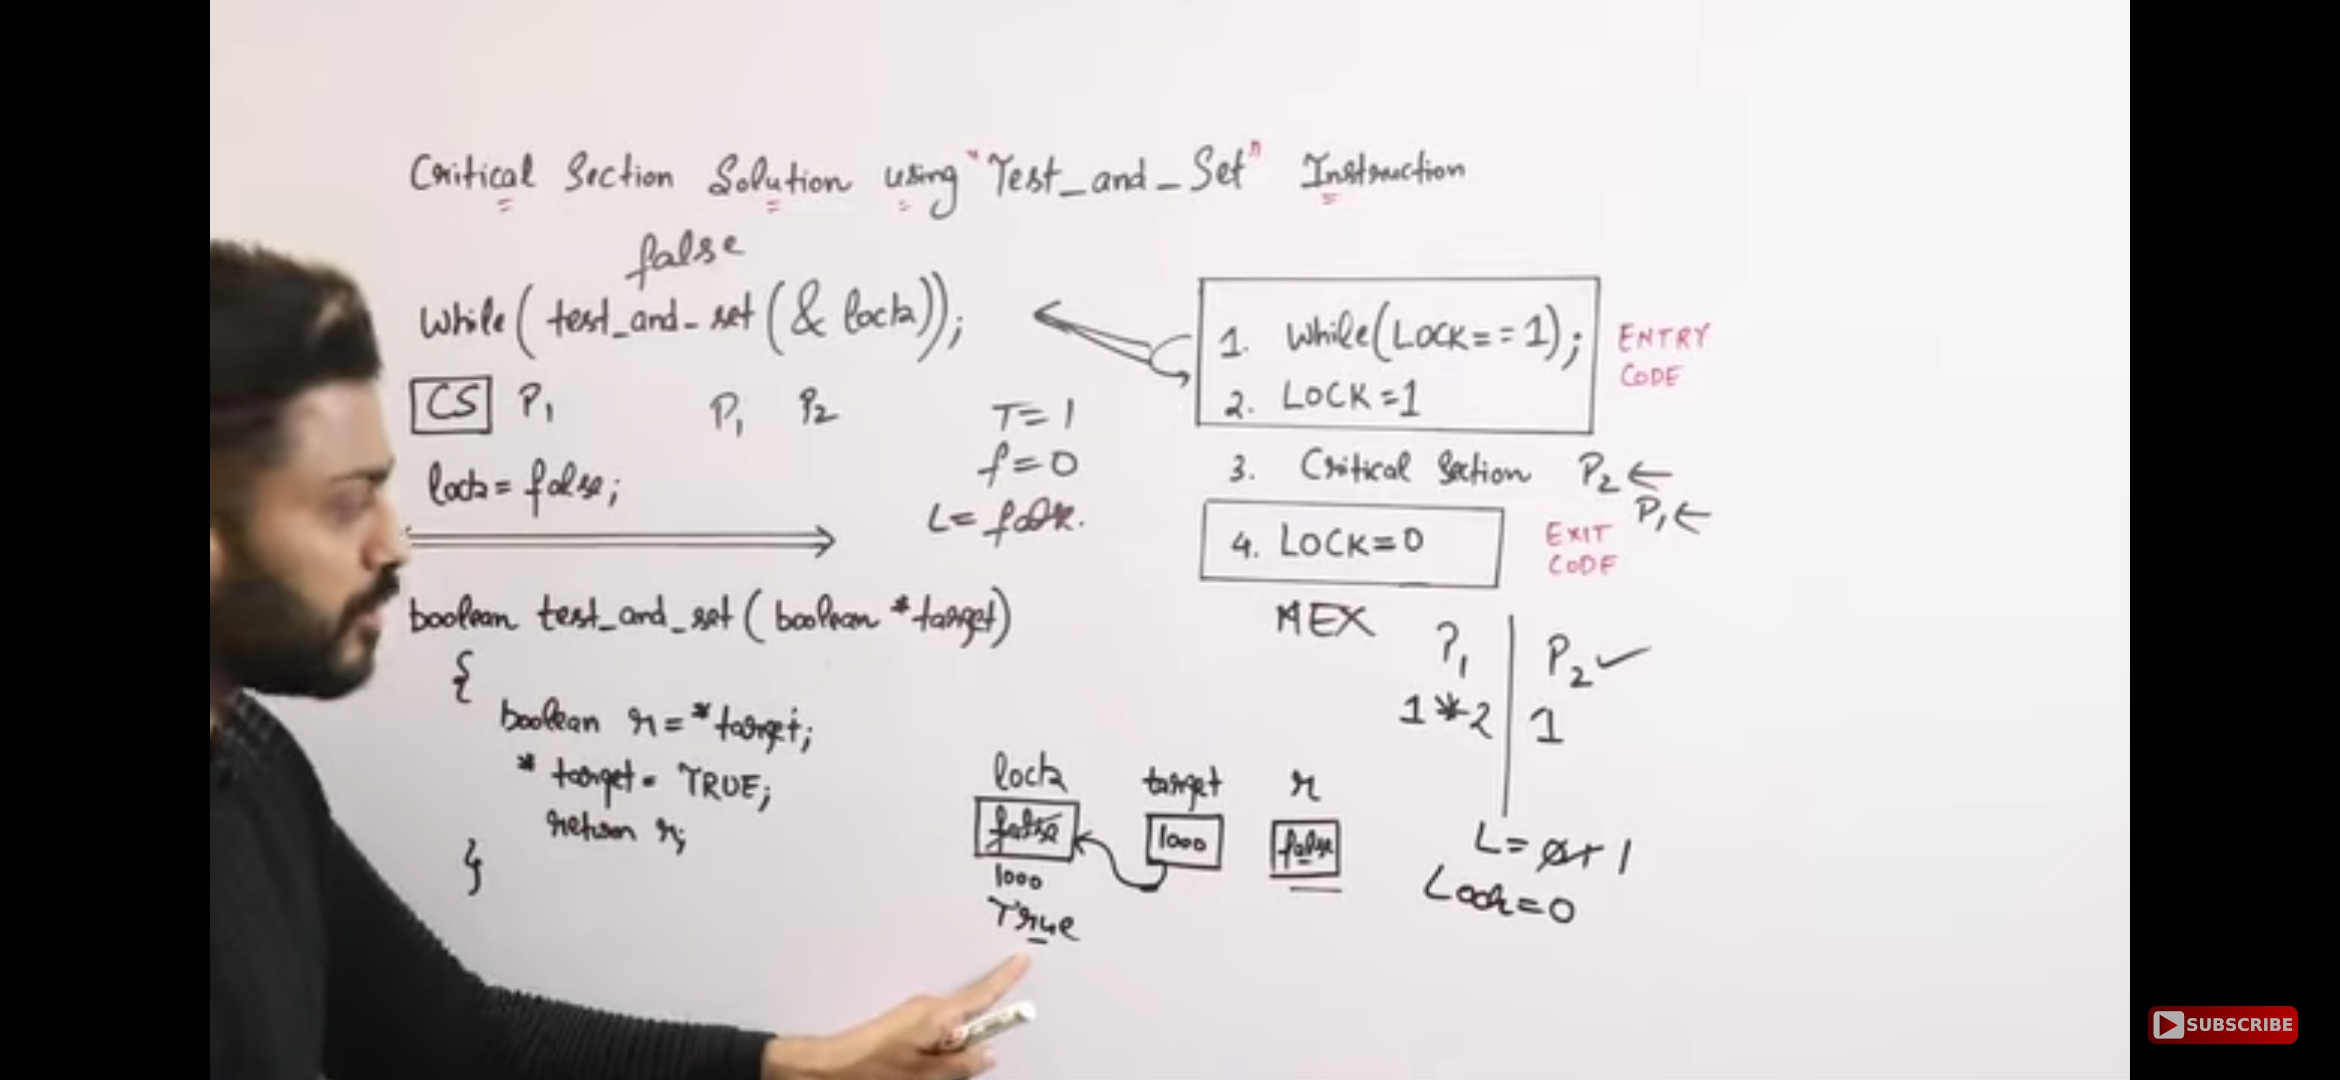 Critical Section Solution using "Test_and_Set" Instruction
false
while(test_and_set(& lock));
CS P1
P1 P2
lock = false;
T=1
f=0
L= false.
boolean test_and_set(boolean *target)
{
boolean r = *target;
* target = TRUE;
return r;
}
1. While(LOCK==1);
2. LOCK=1
ENTRY
CODE
3. Critical Section P2 ←
P1 ←
4. LOCK=0
EXIT
CODE
MEX
P1 P2 ✓
1*2 1
L= 0+1
Lock=0
lock target r
false 1000 false
1000
True
SUBSCRIBE